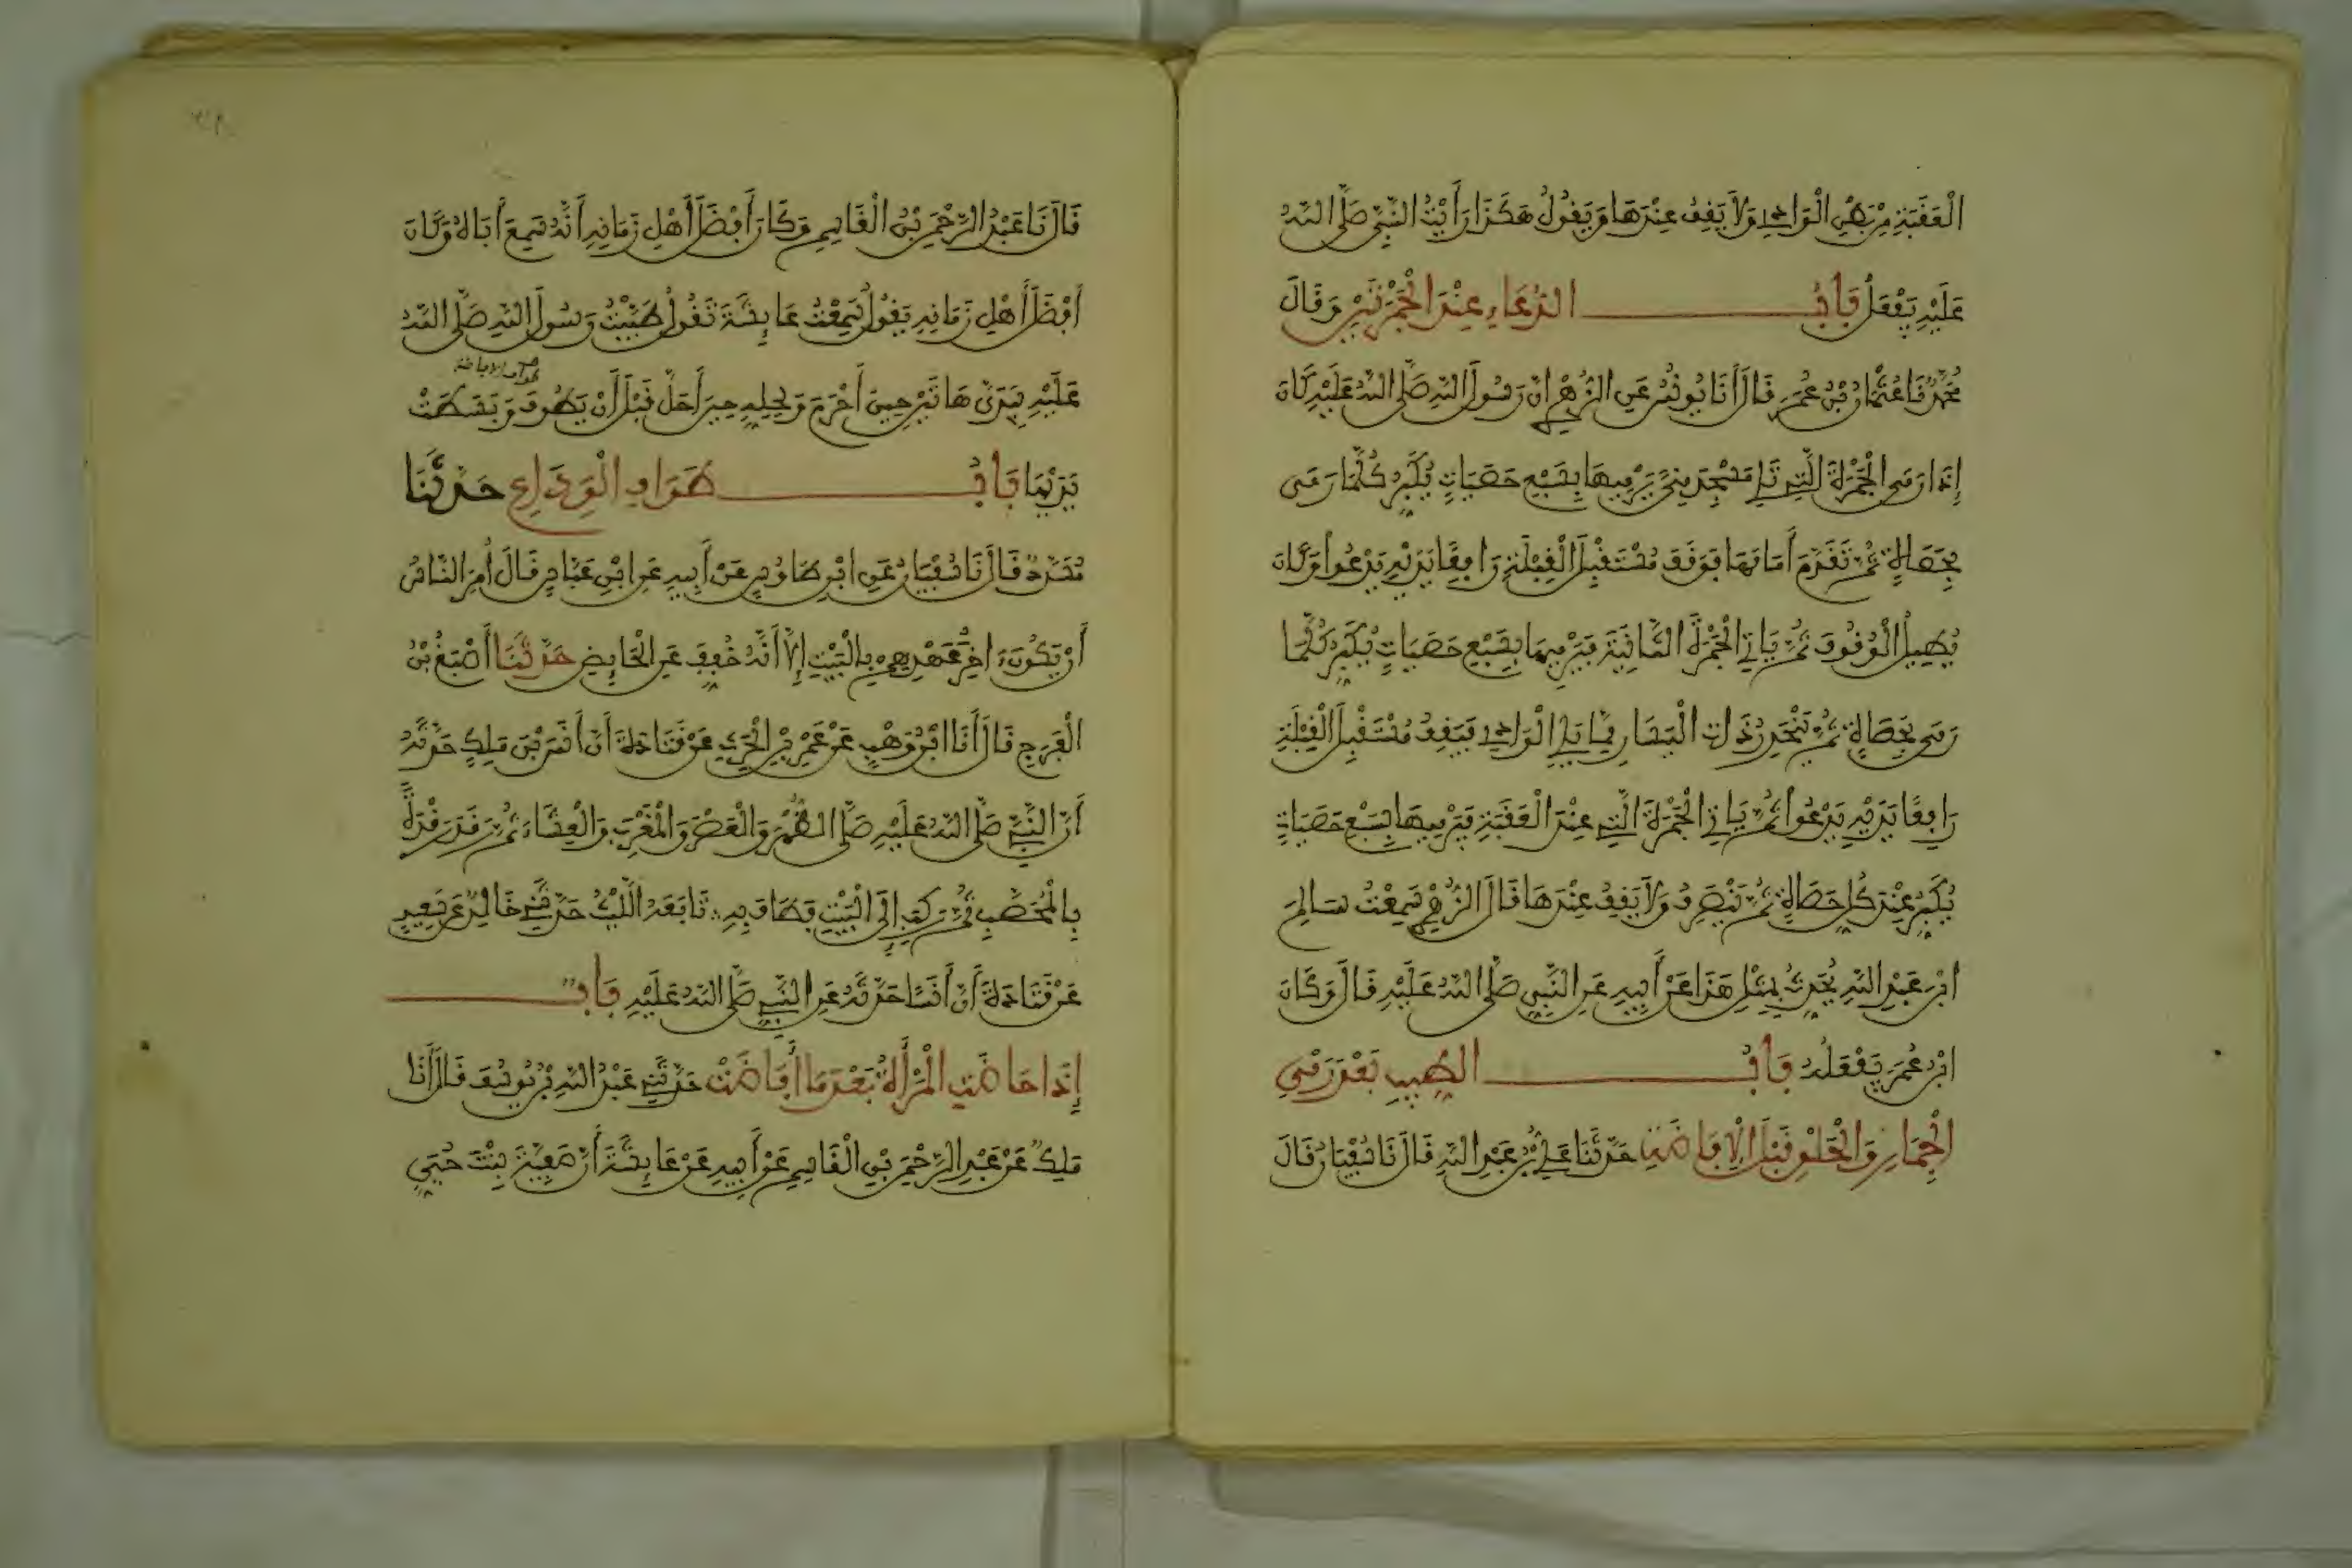 الْعَقَبَةِ مِنْ بَطْنِ الْوَادِي وَلَا يَقِفُ عِنْدَهَا وَيَقُولُ هَكَذَا رَأَيْتُ النَّبِيَّ صَلَّى اللَّهُ
عَلَيْهِ يَفْعَلُ بَابُ الدُّعَاءِ عِنْدَ الْجَمْرَتَيْنِ وَقَالَ
مُحَمَّدٌ نَا عُثْمَانُ بْنُ عُمَرَ قَالَ أَنَا يُونُسُ عَنِ الزُّهْرِيِّ أَنَّ رَسُولَ اللَّهِ صَلَّى اللَّهُ عَلَيْهِ كَانَ
إِذَا رَمَى الْجَمْرَةَ الَّتِي تَلِي مَسْجِدَ مِنًى يَرْمِيهَا بِسَبْعِ حَصَيَاتٍ يُكَبِّرُ كُلَّمَا رَمَى
بِحَصَاةٍ ثُمَّ تَقَدَّمَ أَمَامَهَا فَوَقَفَ مُسْتَقْبِلَ الْقِبْلَةِ رَافِعًا يَدَيْهِ يَدْعُوا وَكَانَ
يُطِيلُ الْوُقُوفَ ثُمَّ يَأْتِي الْجَمْرَةَ الثَّانِيَةَ فَيَرْمِيهَا بِسَبْعِ حَصَيَاتٍ يُكَبِّرُ كُلَّمَا
رَمَى بِحَصَاةٍ ثُمَّ يَنْحَدِرُ ذَاتَ الْيَسَارِ مِمَّا يَلِي الْوَادِي فَيَقِفُ مُسْتَقْبِلَ الْقِبْلَةِ
رَافِعًا يَدَيْهِ يَدْعُوا ثُمَّ يَأْتِي الْجَمْرَةَ الَّتِي عِنْدَ الْعَقَبَةِ فَيَرْمِيهَا بِسَبْعِ حَصَيَاتٍ
يُكَبِّرُ عِنْدَ كُلِّ حَصَاةٍ ثُمَّ يَنْصَرِفُ وَلَا يَقِفُ عِنْدَهَا قَالَ الزُّهْرِيُّ سَمِعْتُ سَالِمَ
ابْنَ عَبْدِ اللَّهِ يُحَدِّثُ بِمِثْلِ هَذَا عَنْ أَبِيهِ عَنِ النَّبِيِّ صَلَّى اللَّهُ عَلَيْهِ قَالَ وَكَانَ
ابْنُ عُمَرَ يَفْعَلُهُ بَابُ الطِّيبِ بَعْدَ رَمْيِ
الْجِمَارِ وَالْحَلْقِ قَبْلَ الْإِفَاضَةِ حَدَّثَنَا عَلِيُّ بْنُ عَبْدِ اللَّهِ قَالَ نَا سُفْيَانُ قَالَ
قَالَ نَا عَبْدُ الرَّحْمَنِ بْنُ الْقَاسِمِ وَكَانَ أَفْضَلَ أَهْلِ زَمَانِهِ أَنَّهُ سَمِعَ أَبَاهُ وَكَانَ
أَفْضَلَ أَهْلِ زَمَانِهِ يَقُولُ سَمِعْتُ عَائِشَةَ تَقُولُ طَيَّبْتُ رَسُولَ اللَّهِ صَلَّى اللَّهُ
عَلَيْهِ بِيَدَيَّ هَاتَيْنِ حِينَ أَحْرَمَ وَلِحِلِّهِ حِينَ أَحَلَّ قَبْلَ أَنْ يَطُوفَ وَبَسَطَتْ
طواف الافاضة
يَدَيْهَا بَابُ طَوَافِ الْوَدَاعِ حَدَّثَنَا
مُسَدَّدٌ قَالَ نَا سُفْيَانُ عَنِ ابْنِ طَاوُسٍ عَنْ أَبِيهِ عَنِ ابْنِ عَبَّاسٍ قَالَ أُمِرَ النَّاسُ
أَنْ يَكُونَ آخِرُ عَهْدِهِمْ بِالْبَيْتِ إِلَّا أَنَّهُ خُفِّفَ عَنِ الْحَائِضِ حَدَّثَنَا أَصْبَغُ بْنُ
الْفَرَجِ قَالَ أَنَا ابْنُ وَهْبٍ عَنْ عَمْرِو بْنِ الْحَرِثِ عَنْ قَتَادَةَ أَنَّ أَنَسَ بْنَ مَلِكٍ حَدَّثَهُ
أَنَّ النَّبِيَّ صَلَّى اللَّهُ عَلَيْهِ صَلَّى الظُّهْرَ وَالْعَصْرَ وَالْمَغْرِبَ وَالْعِشَاءَ ثُمَّ رَقَدَ رَقْدَةً
بِالْمُحَصَّبِ ثُمَّ رَكِبَ إِلَى الْبَيْتِ فَطَافَ بِهِ تَابَعَهُ اللَّيْثُ حَدَّثَنِي خَالِدٌ عَنْ سَعِيدٍ
عَنْ قَتَادَةَ أَنَّ أَنَسًا حَدَّثَهُ عَنِ النَّبِيِّ صَلَّى اللَّهُ عَلَيْهِ بَابٌ
إِذَا حَاضَتِ الْمَرْأَةُ بَعْدَ مَا أَفَاضَتْ حَدَّثَنِي عَبْدُ اللَّهِ بْنُ يُوسُفَ قَالَ أَنَا
مَلِكٌ عَنْ عَبْدِ الرَّحْمَنِ بْنِ الْقَاسِمِ عَنْ أَبِيهِ عَنْ عَائِشَةَ أَنَّ صَفِيَّةَ بِنْتَ حُيَيٍّ